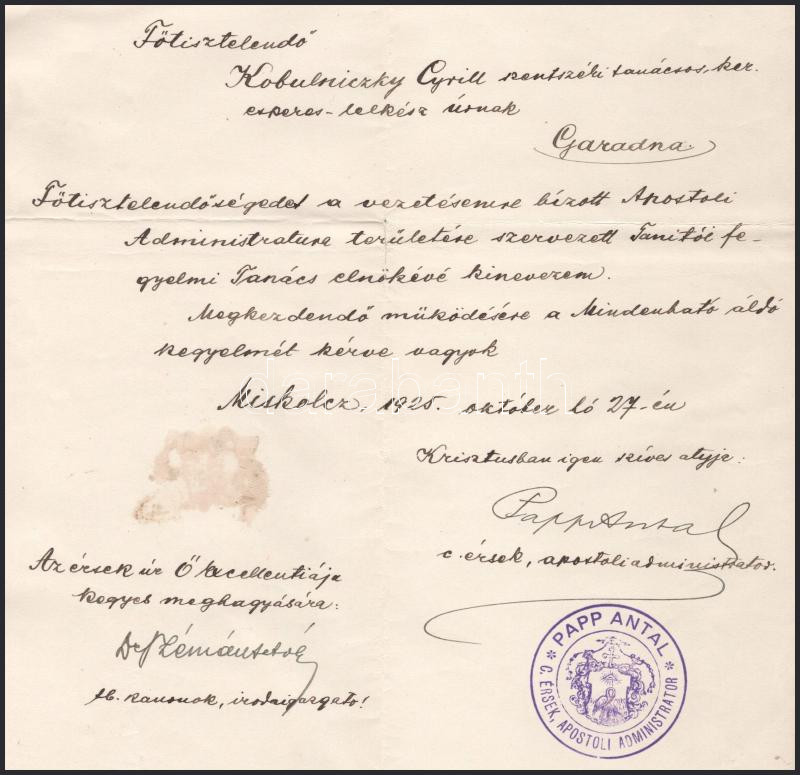 Főtisztelendő
Kobulniczky Cyrill szentszéki tanácsos, ker.
esperes-lelkész úrnak
Garadna.
Főtisztelendőségedet a vezetésemre bízott Apostoli
Administratura területére szervezett Tanítói fe-
gyelmi Tanács elnökévé kinevezem.
Megkezdendő működésére a Mindenható áldó
kegyelmét kérve vagyok
Miskolcz, 1925. október hó 27-én
Krisztusban igen szíves atyja:
Papp Antal
c. érsek, apostoli administrator.
Az érsek úr Ő Excellentiája
kegyes meghagyására:
Dr
tb. kanonok, irodaigazgató!
PAPP ANTAL
* C. ÉRSEK, APOSTOLI ADMINISTRATOR *
darabanth